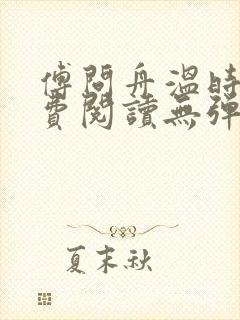 傅問舟溫時
費閱讀無彈
夏末秋